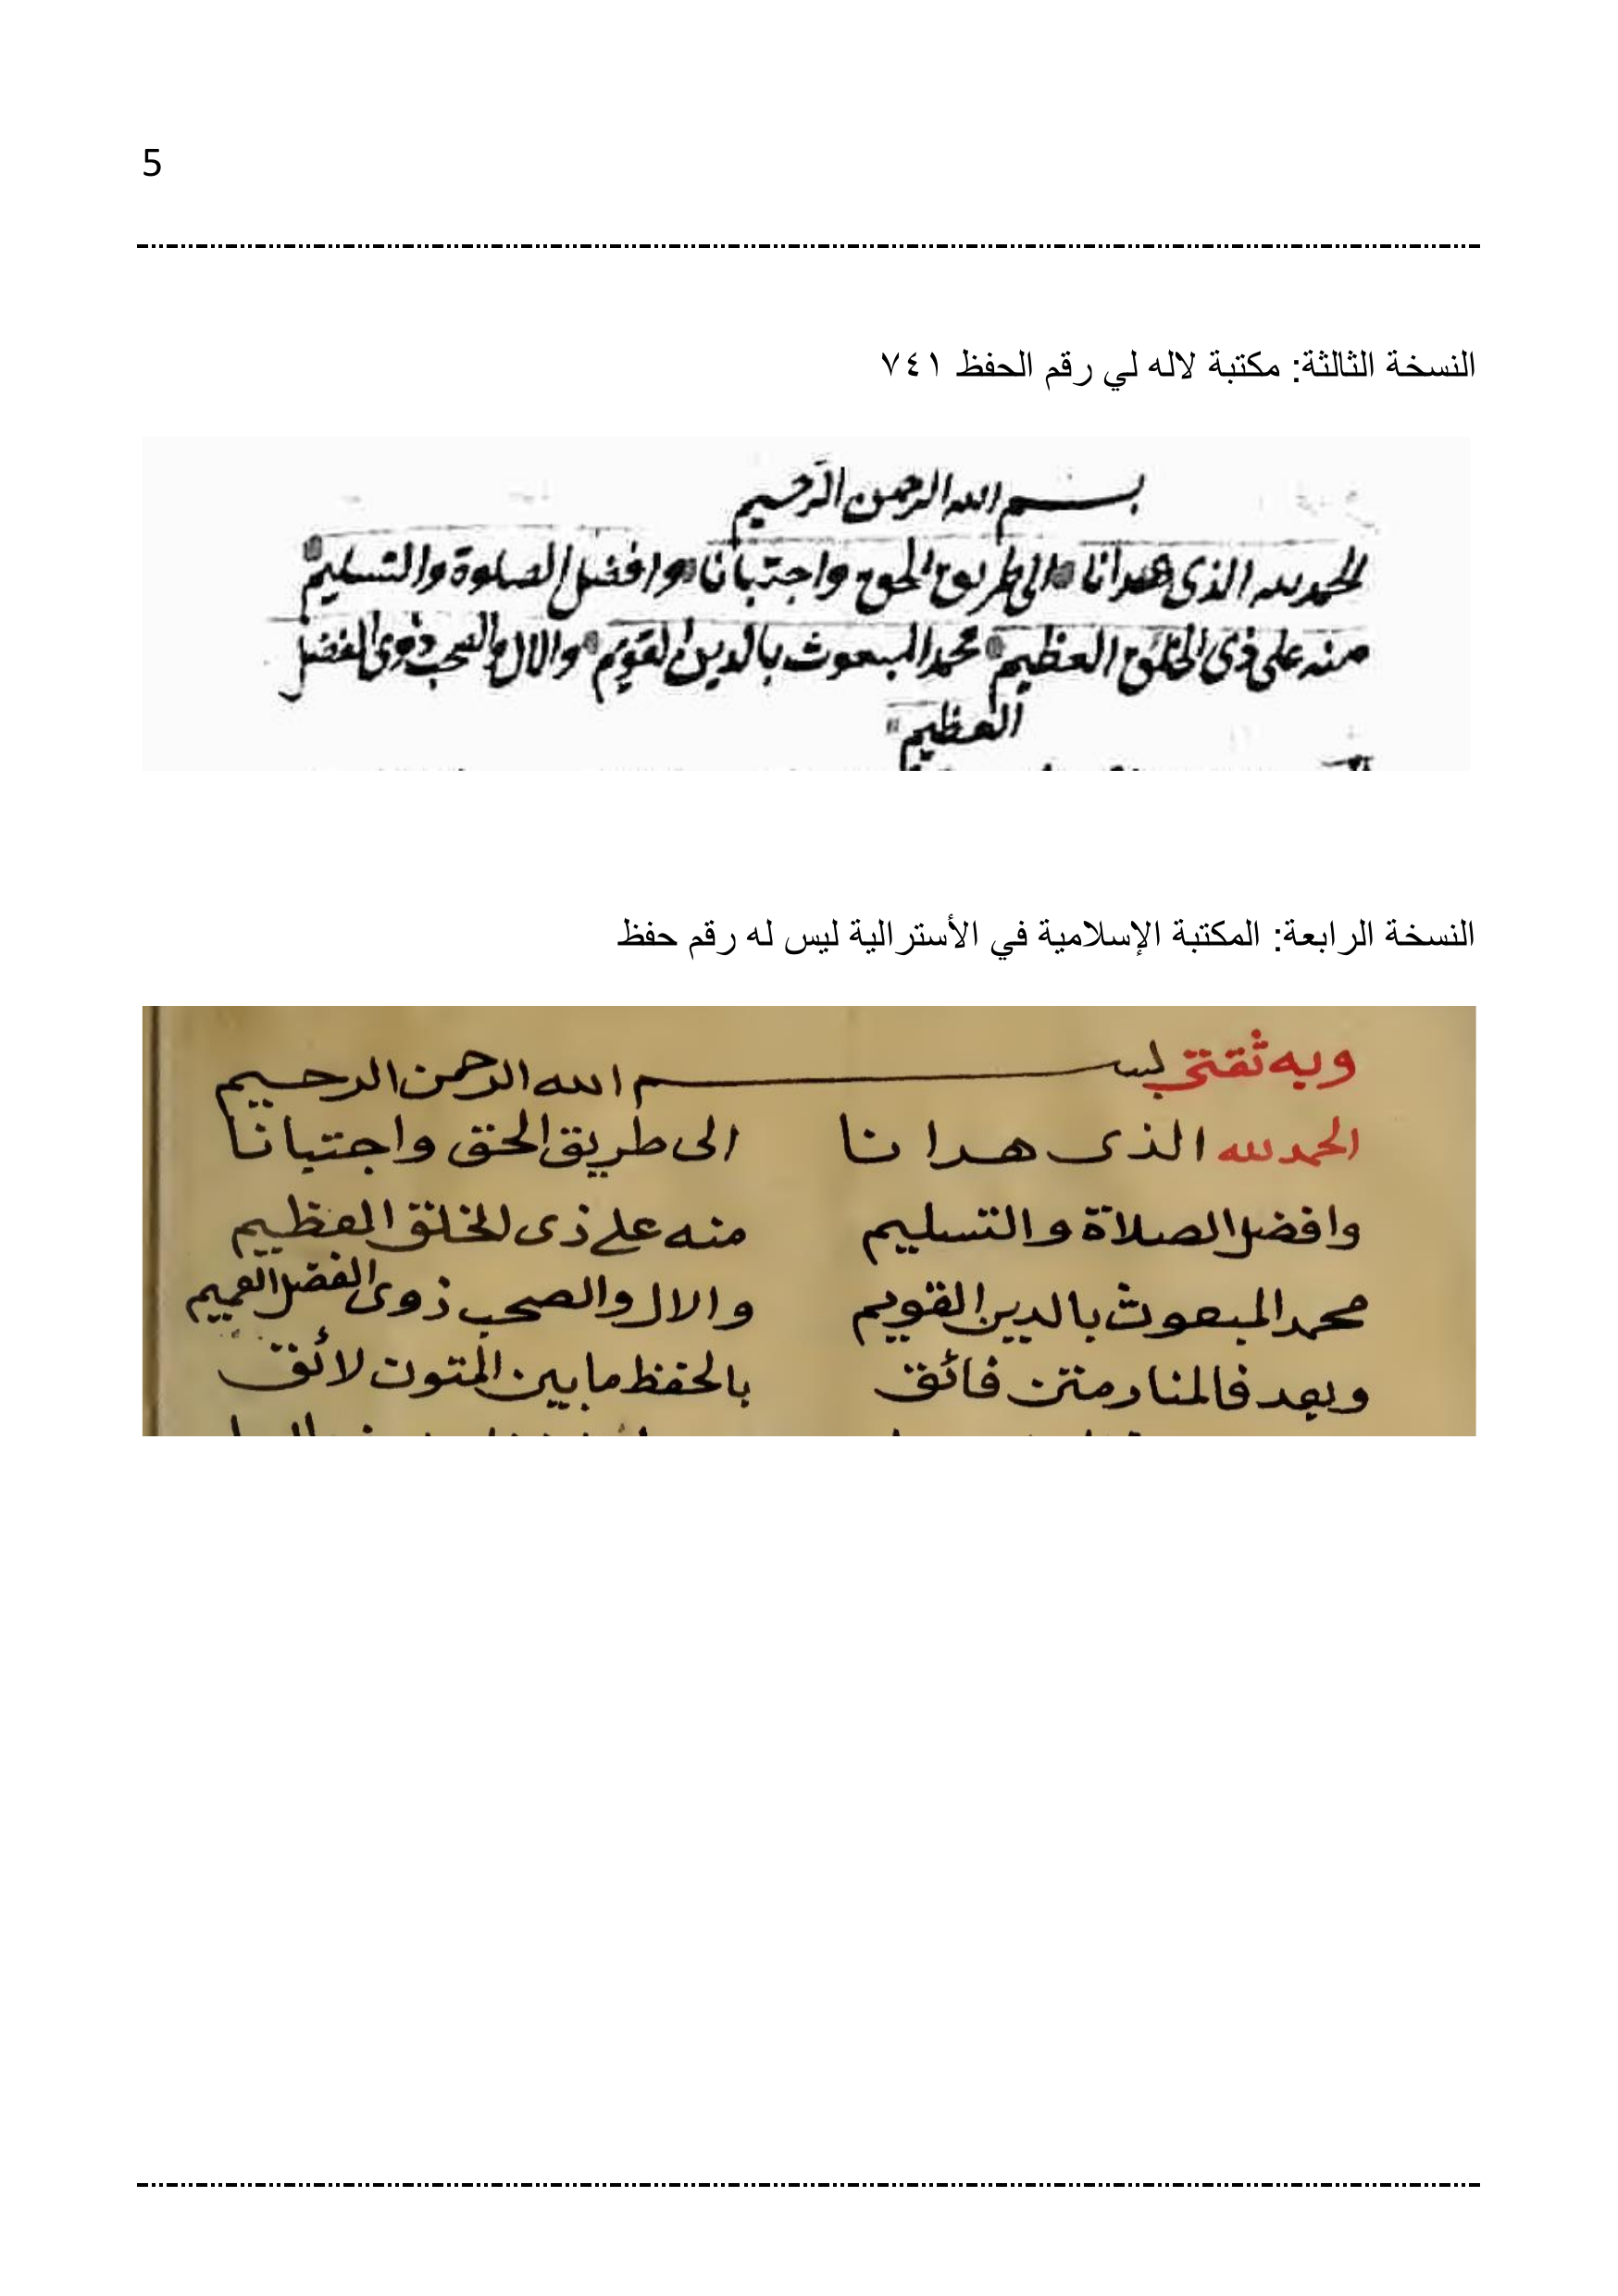 5
النسخة الثالثة: مكتبة لاله لي رقم الحفظ ٧٤١
بسم الله الرحمن الرحيم
الحمد لله الذى هدانا الى طريق الحق واجتبانا وافضل الصلوة والتسليم
منه على ذى الخلق العظيم محمد المبعوث بالدين القويم والال والصحب ذوى الفضل
العظيم
النسخة الرابعة: المكتبة الإسلامية في الأسترالية ليس له رقم حفظ
وبه ثقتي بسم الله الرحمن الرحيم
الحمد لله الذى هدانا الى طريق الحق واجتبانا
وافضل الصلاة والتسليم منه على ذى الخلق العظيم
محمد المبعوث بالدين القويم والال والصحب ذوى الفضل العميم
وبعد فالمنار متن فائق بالحفظ ما بين المتون لائق